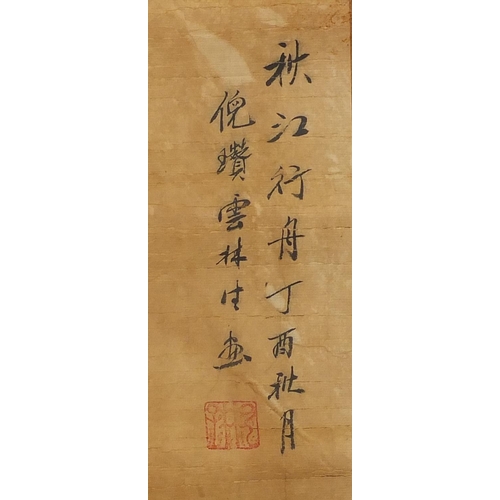 秋江行舟丁酉秋月
倪瓚雲林生画